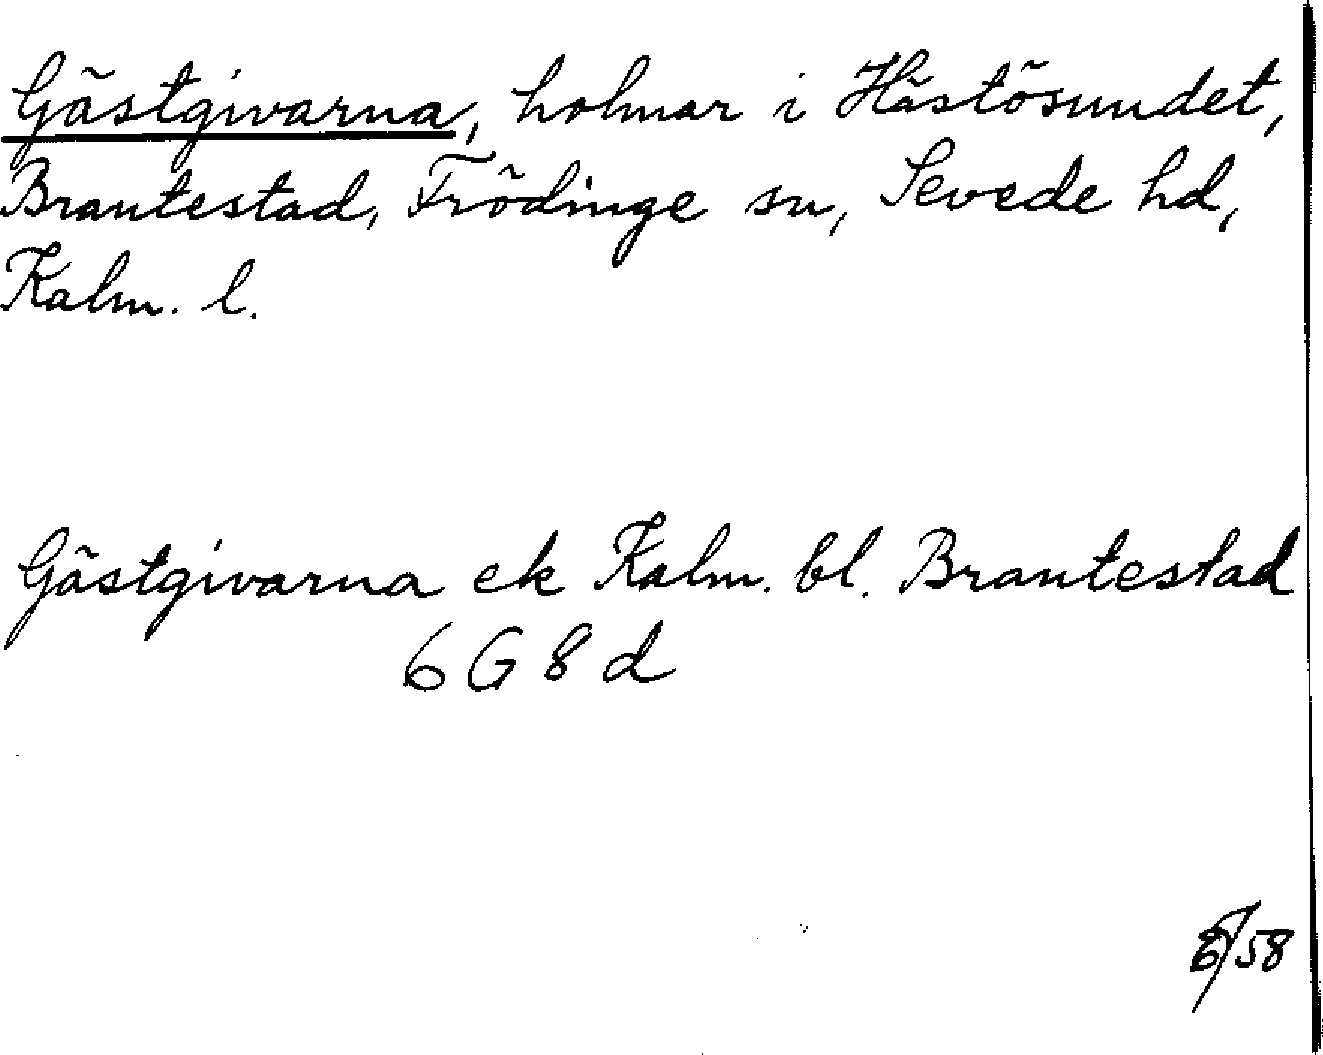 Gästgivarna, holmar i Hästösundet,
Brantestad, Frödinge sn, Sevede hd,
Kalm. l.
Gästgivarna ek Kalm. bl. Brantestad
6 G 8 d
/58